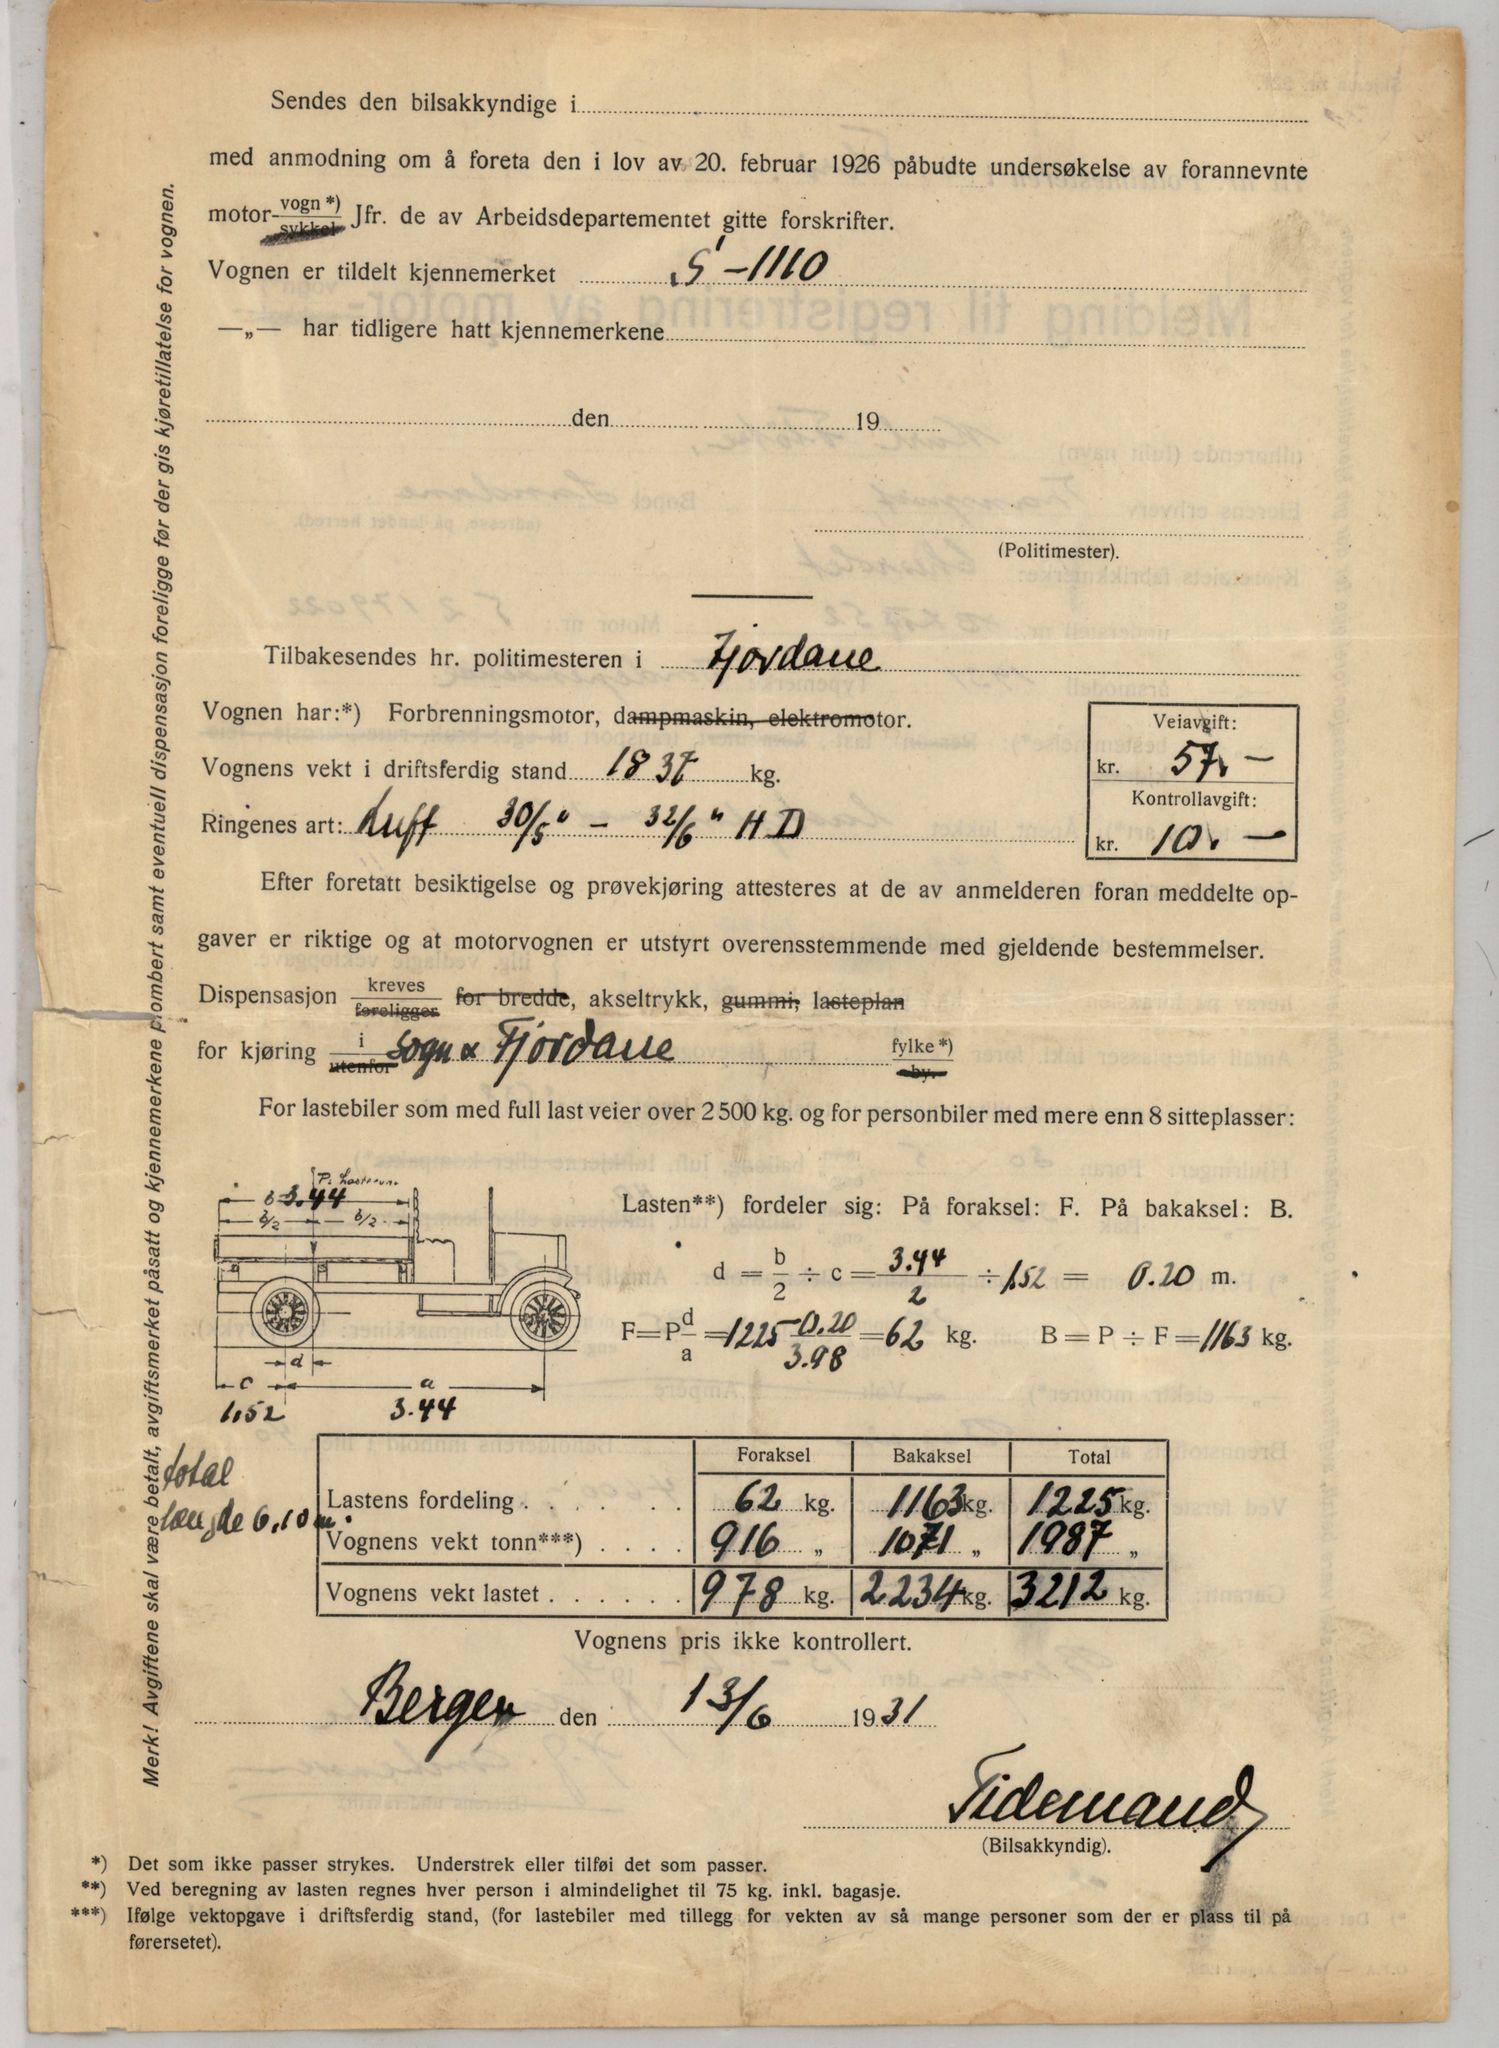 Sendes den bilsakkyndige i
med anmodning om å foreta den i lov av 20. februar 1926 påbudte undersøkelse av forannevnte
motor- vogn*) sykkel Jfr. de av Arbeidsdepartementet gitte forskrifter.
Vognen er tildelt kjennemerket S-1110
—„— har tidligere hatt kjennemerkene
den 19
(Politimester).
Tilbakesendes hr. politimesteren i Fjordane
Vognen har:*) Forbrenningsmotor, dampmaskin, elektromotor.
Veiavgift:
kr. 57.—
Vognens vekt i driftsferdig stand 1837 kg.
Kontrollavgift:
kr. 10.—
Ringenes art: Luft 30/5" – 32/6" HD
Efter foretatt besiktigelse og prøvekjøring attesteres at de av anmelderen foran meddelte op-
gaver er riktige og at motorvognen er utstyrt overensstemmende med gjeldende bestemmelser.
Dispensasjon kreves foreligger for bredde, akseltrykk, gummi, lasteplan
for kjøring i utenfor Sogn & Fjordane fylke*) by.
For lastebiler som med full last veier over 2500 kg. og for personbiler med mere enn 8 sitteplasser:
b 3.44
b/2 b/2
d
c a
1.52 3.44
Lasten**) fordeler sig: På foraksel: F. På bakaksel: B.
d = b/2 ÷ c = 3.44/2 ÷ 1.52 = 0.20 m.
F=P d/a = 1225 – 0.20/3.98 = 62 kg. B = P ÷ F = 1163 kg.
total
længde 6.10 m.
Foraksel Bakaksel Total
Lastens fordeling . . . . . . 62 kg. 1163 kg. 1225 kg.
Vognens vekt tonn***) . . . . 916 „ 1071 „ 1987 „
Vognens vekt lastet . . . . . . 978 kg. 2234 kg. 3212 kg.
Vognens pris ikke kontrollert.
Bergen den 13/6 1931
Tidemand
(Bilsakkyndig).
*) Det som ikke passer strykes. Understrek eller tilføi det som passer.
**) Ved beregning av lasten regnes hver person i almindelighet til 75 kg. inkl. bagasje.
***) Ifølge vektopgave i driftsferdig stand, (for lastebiler med tillegg for vekten av så mange personer som der er plass til på
førersetet).
Merk! Avgiftene skal være betalt, avgiftsmerket påsatt og kjennemerkene plombert samt eventuell dispensasjon foreligge før der gis kjøretillatelse for vognen.